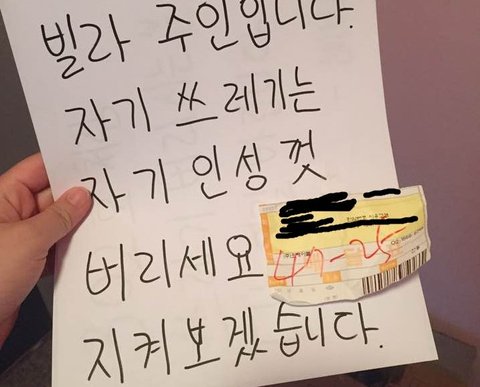 빌라 주인입니다.
자기 쓰레기는
자기 인성 껏
버리세요
47-25
지켜보겠습니다.